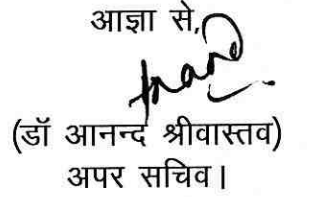 आज्ञा से,
(डॉ आनन्द श्रीवास्तव)
अपर सचिव।